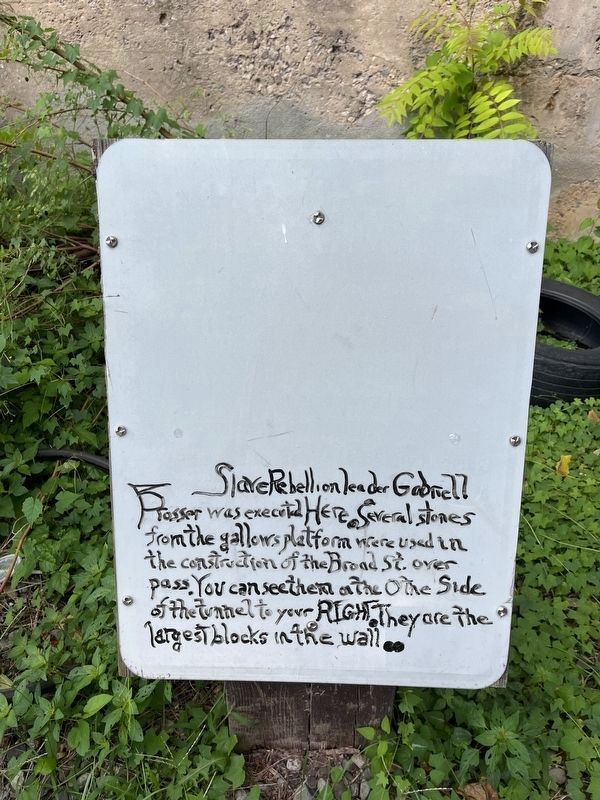 Slave Rebellion leader Gabriell
Prosser was executd HERE. Several stones
from the gallows platform were used in
the construction of the Broad St. over
pass. You can see them on the Othe Side
of the tunnel to your RIGHT. They are the
largest blocks in the wall..